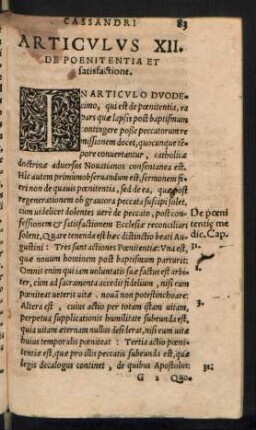 CASSANDRI 83
ARTICVLVS XII.
DE POENITENTIA ET
satisfactione.
IN ARTICVLO DVODE-
cimo, qui est de pœnitentia, ea
pars quæ lapsis post baptismum
contingere posse peccatorum re
missionem docet, quocunque tẽ-
pore conuertantur, catholicæ
doctrinæ aduersus Nouatianos consentanea est.
Hic autem primum obseruandum est, sermonem fi-
eri non de quauis pœnitentia, sed de ea, quæ post
regenerationem ob grauiora peccata suscipi solet,
cum videlicet dolentes uerè de peccato, post con-
fessionem & satisfactionem Ecclesiæ reconciliari
solent. Quare tenenda est hæc distinctio beati Au-
gustini: Tres sunt actiones Pœnitentiæ: Vna est,
quæ nouum hominem post baptismum parturit:
Omnis enim qui iam voluntatis suæ factus est arbi-
ter, cum ad sacramenta accedit fidelium, nisi eum
pœniteat ueteris vitæ, nouã non potest inchoare:
Altera est, cuius actio per totam istam uitam,
perpetua supplicationis humilitate subeunda est,
quia uitam æternam nullus desiderat, nisi eum uitæ
huius temporalis pœniteat: Tertia actio pœni-
tentiæ est, quæ pro illis peccatis subeunda est, quæ
legis decalogus continet, de quibus Apostolus:
G 2 Quo-
De pœni
tentijs me
dic. Cap.
3.